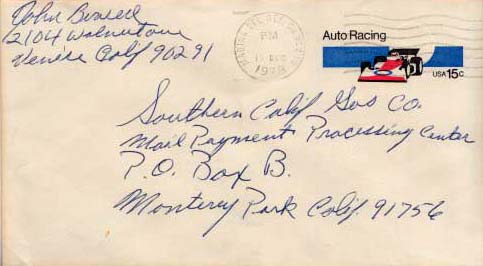 John
12104 Walnut
Venice Calif 90291
MARINA DEL REY
PM
1978
Auto Racing
USA 15c
Southern Calif Gas Co.
Mail Payment Processing Center
P.O. Box B.
Monterey Park Calif. 91756